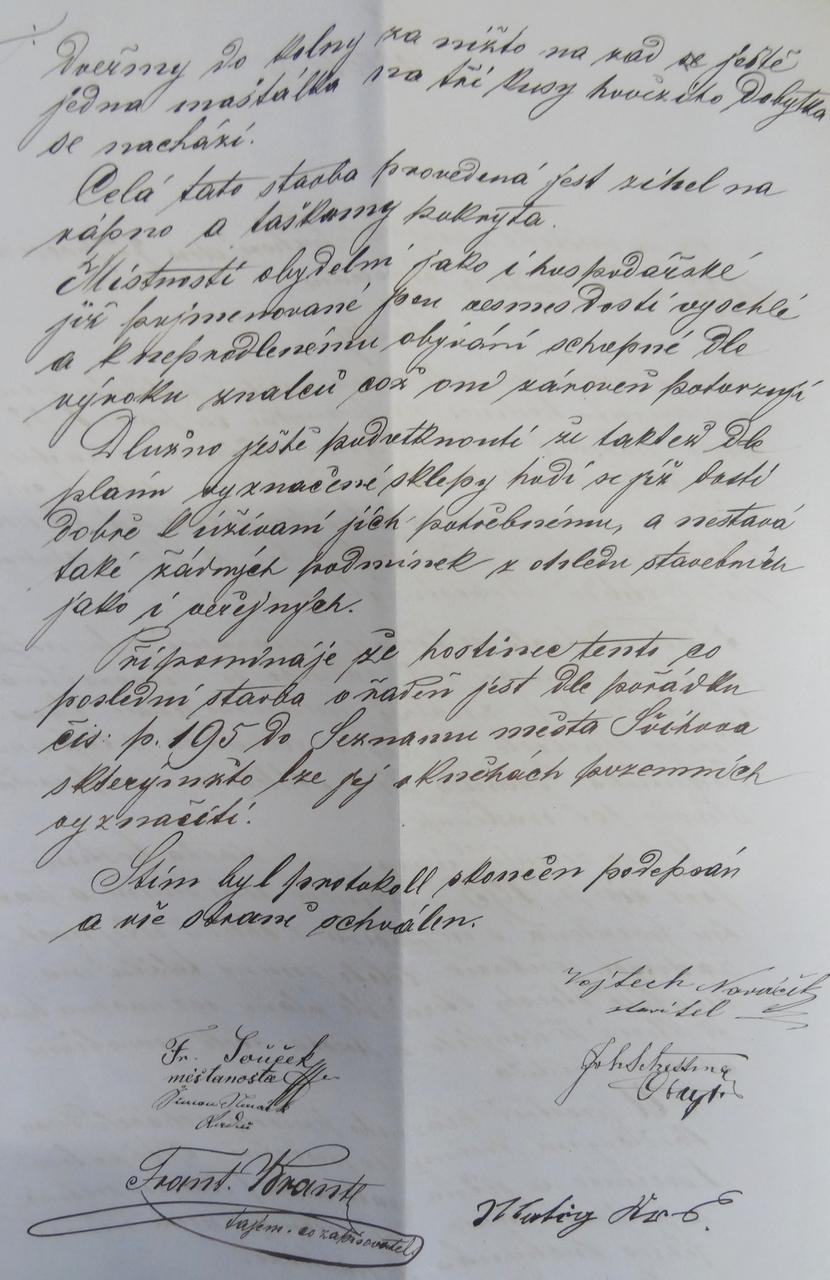 Dveřmy do kolny za nižto na zad se ještě
jedna maštálka na tři kusy hovězího dobytka
se nachází.
Celá tato stavba provedená jest zihel na
vápno a taškamy pokryta.
Místnosti obydelní jako i hospodářské
již pojmenované jsou vesmes dosti vyschlé
a k neprodlenému obývání schopné dle
výroku znalců což oni zároveň potvrzují
Dlužno ještě podotknouti že taktéž dle
planu vyznačené sklepy hodí se již dosti
dobře k úžívaní jich potřebnému, a nestavá
také žádných podmínek z ohledu stavebních
jako i veřejných.
Připomínáje že hostinec tento co
poslední stavba vřaděn jest dle pořádku
čís: p. 195 do Seznamu města Švihova
skterýmžto lze jej v knihách pozemních
vyznačiti.
Stím byl protokoll skončen podepsán
a vše straně schválen.
Vojtech Nováček
stavitel
Fr. Souček
měšťanosta
Frant. Brantl
tajem. co zapisovatel.
Matěj